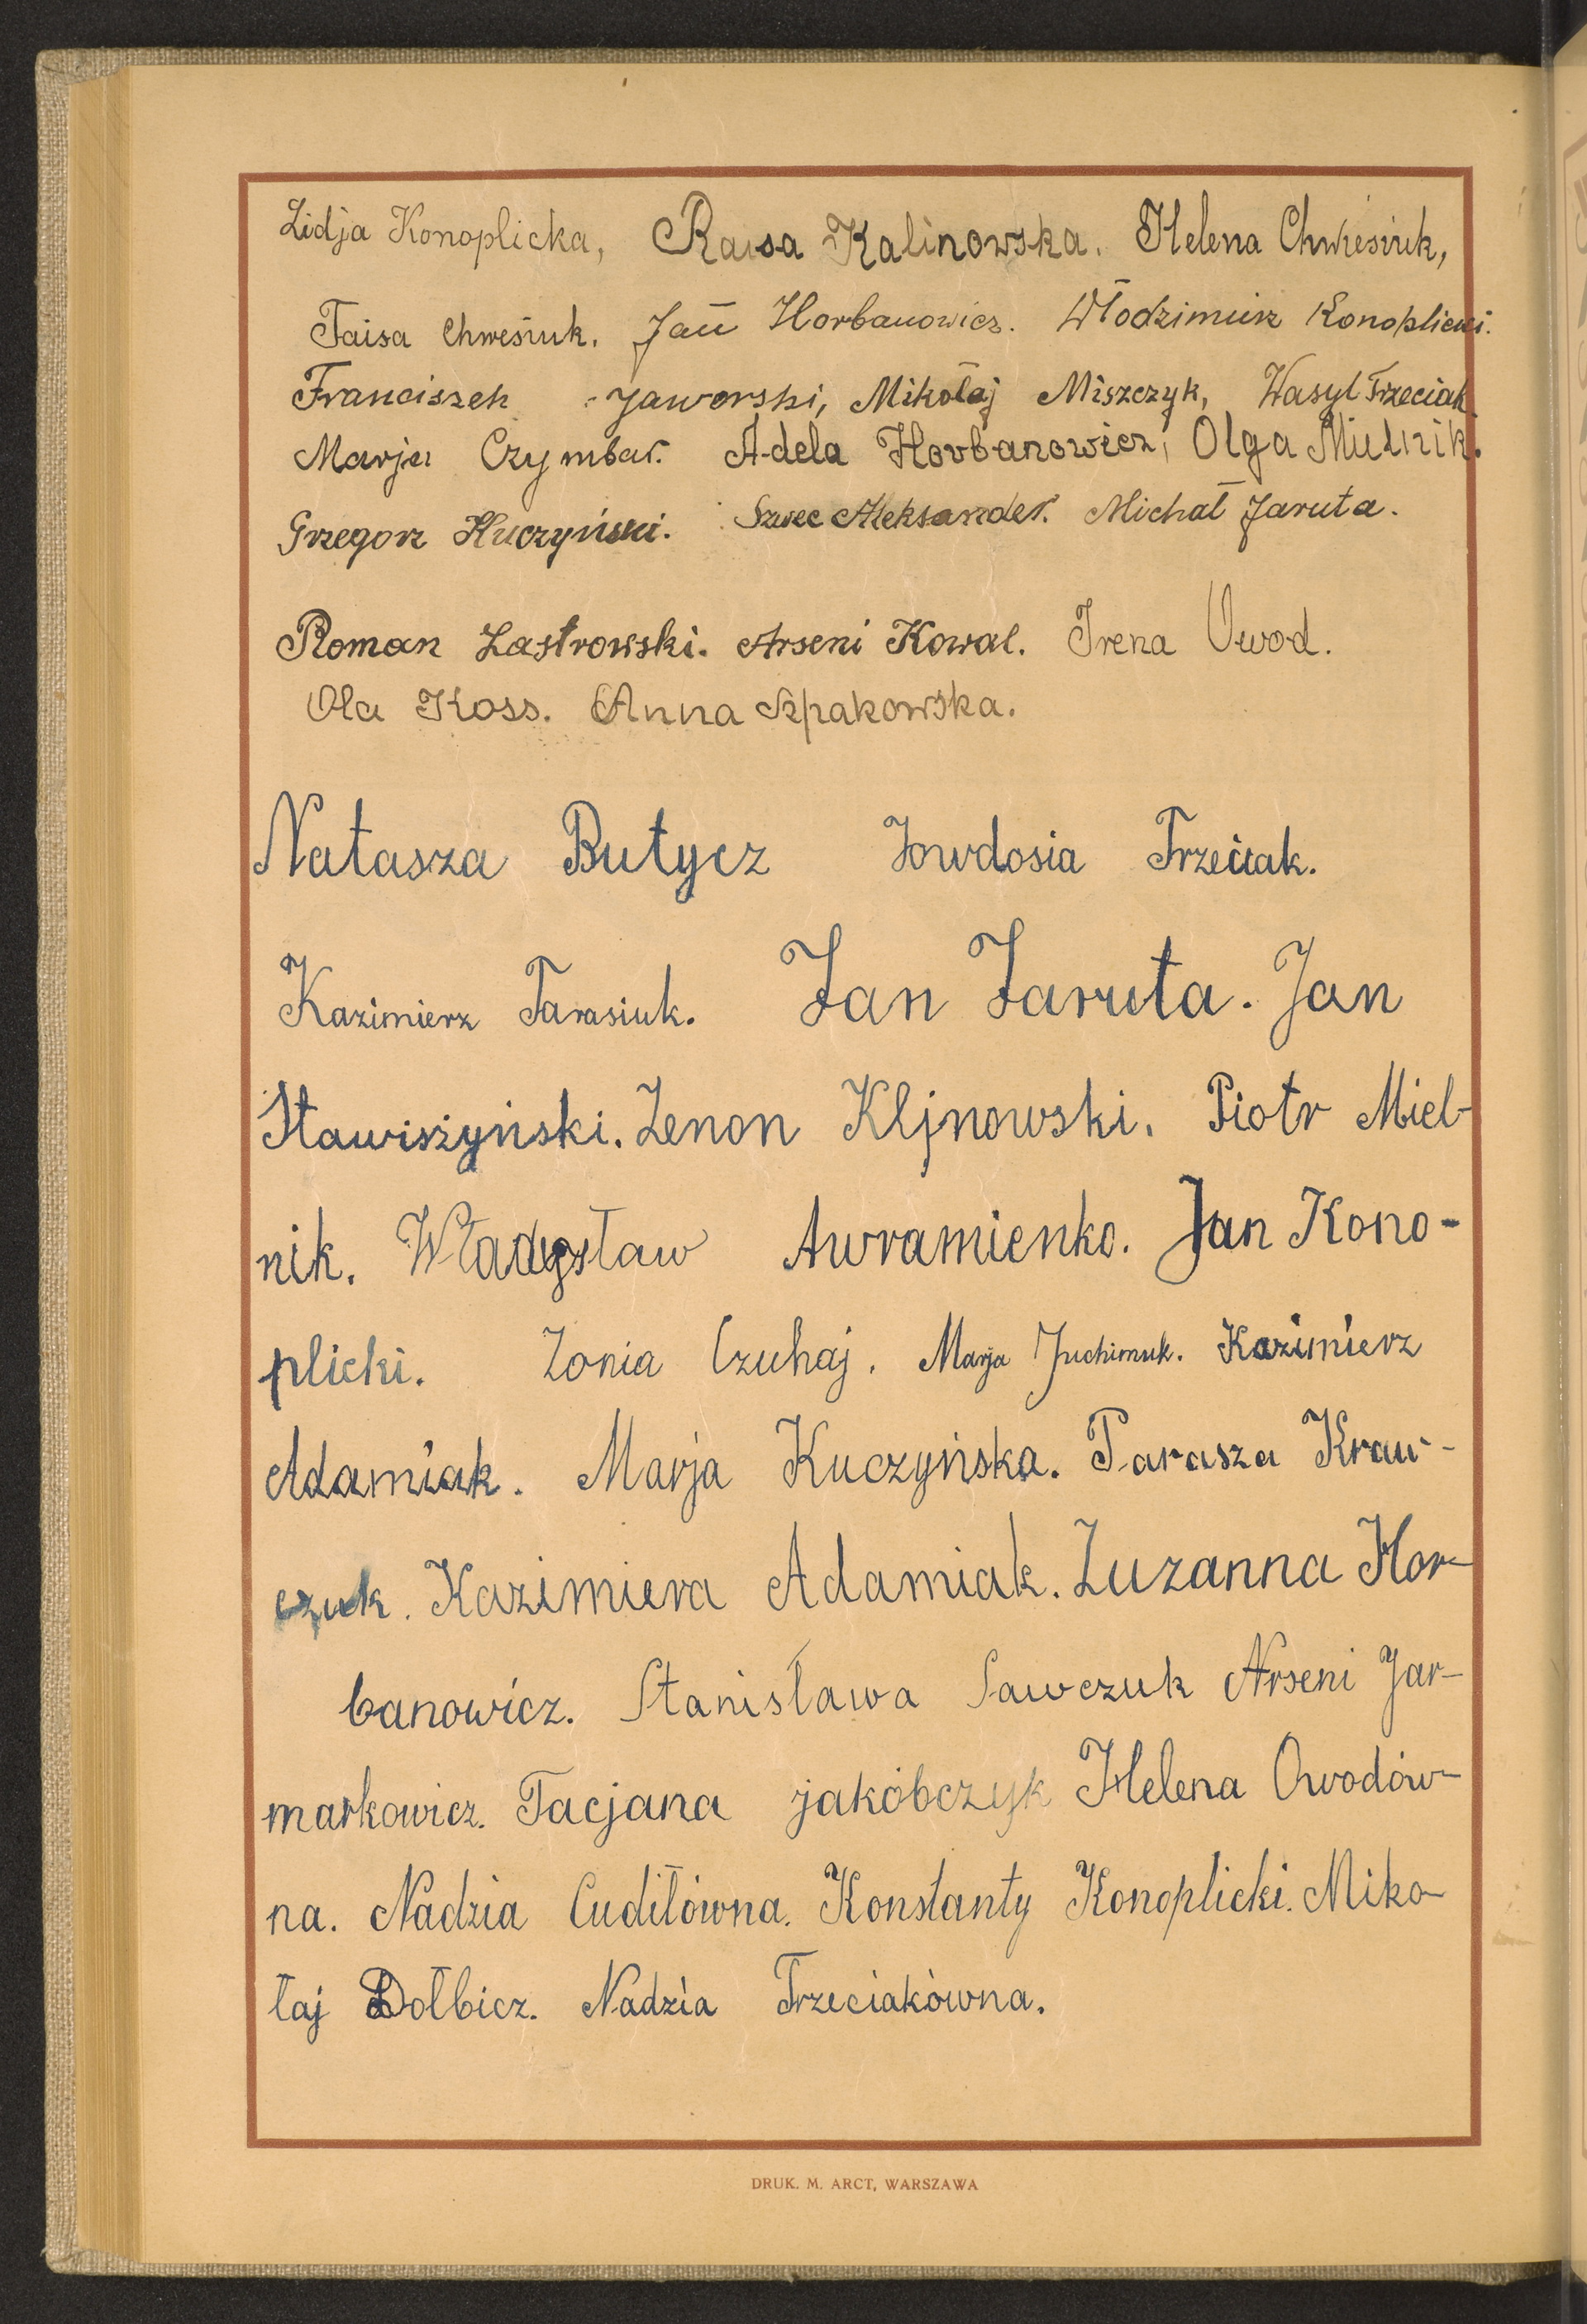 Lidja Konoplicka, Raisa Kalinowska. Helena Chwesiuk,
Taisa Chwesiuk. Jan Horbanowicz. Włodzimierz Konoplicki.
Franciszek Jaworski, Mikołaj Miszczyk, Wasyl Trzeciak
Marja Czymbar. Adela Horbanowicz, Olga Mielnik.
Grzegorz Kuczyński. Szwec Aleksander. Michał Jaruta.
Roman Zastrowski. Arseni Kowal. Irena Owod.
Ola Koss. Anna Szpakowska.
Natasza Butycz Jowdosia Trzeciak.
Kazimierz Tarasiuk. Jan Jaruta. Jan
Stawiszyński. Zenon Kljnowski. Piotr Miel-
nik. Władysław Awramienko. Jan Kono-
plicki. Zonia Czuhaj. Marja Juchimuk. Kazimierz
Adamiak. Marja Kuczyńska. Parasza Kraw-
czuk. Kazimiera Adamiak. Zuzanna Hor-
banowicz. Stanisława Sawczuk Arseni Jar-
markowicz. Tacjana jakóbczyk Helena Owodów-
na. Nadzia Cudiłówna. Konstanty Konoplicki. Miko-
łaj Dołbicz. Nadzia Trzeciakówna.
DRUK. M. ARCT, WARSZAWA